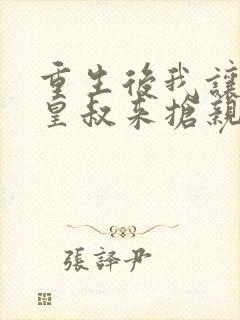 重生後我讓
皇叔来搶親
張譯尹